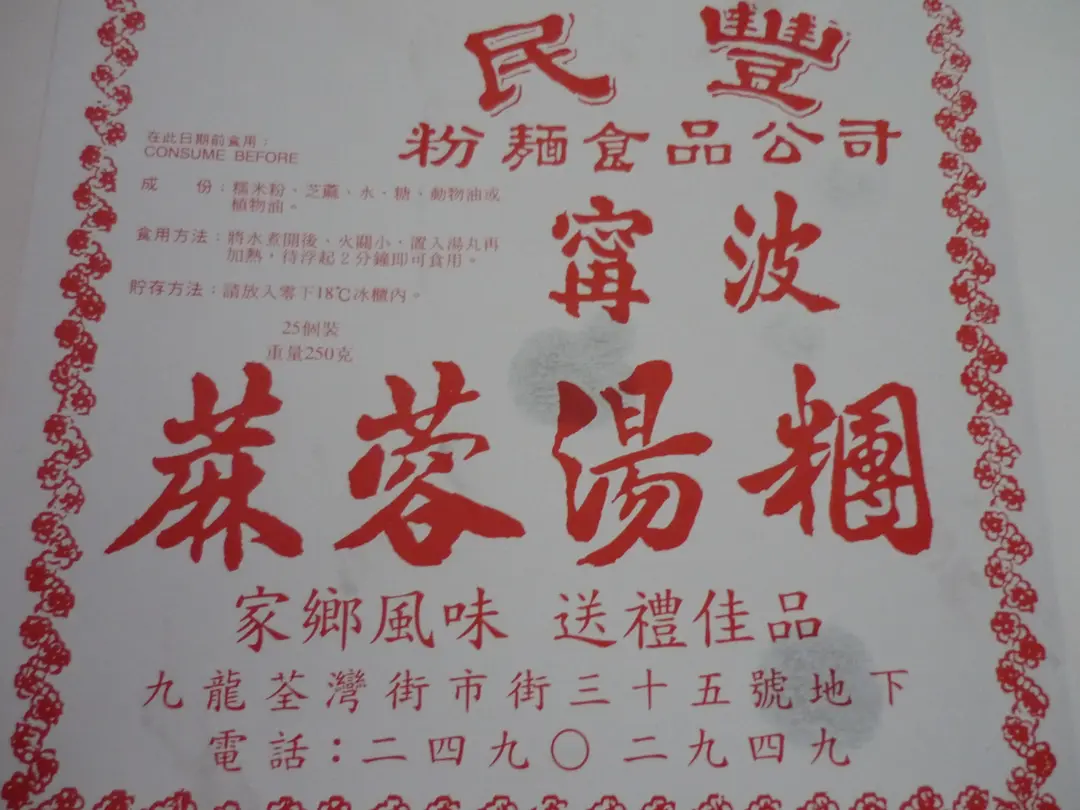 民豐
粉麵食品公司
在此日期前食用：
CONSUME BEFORE
成　份：糯米粉、芝蔴、水、糖、動物油或
植物油。
食用方法：將水煮開後、火關小，置入湯丸再
加熱，待浮起2分鐘即可食用。
貯存方法：請放入零下18℃冰櫃內。
25個裝
重量250克
甯波
蔴蓉湯糰
家鄉風味 送禮佳品
九龍荃灣街市街三十五號地下
電話：二四九〇二九四九